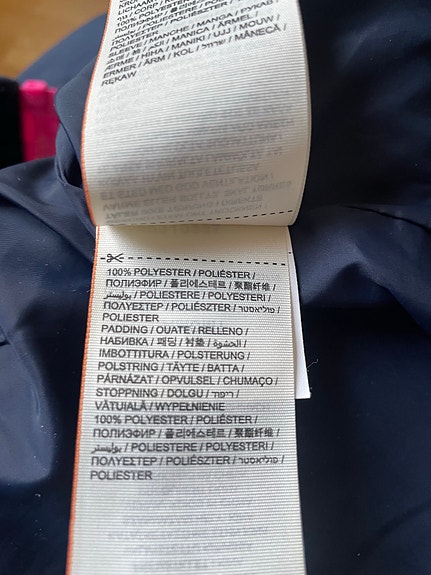 LICHAAM
גוף / CORP /
100% POLYESTER
ПОЛИЭФИР /
/ بوليستر
ΠΟΛΥΕΣΤΕΡ / POLIÉSZTER /
POLIESTER
SLEEVE / MANCHE / MANGA / РУКАВ /
소매 / 袖 / الكم / MANICA / ÄRMEL /
ÆRME / HIHA / MANIKI / UJJ / MOUW /
ERMER / ÄRM / KOL / שרוול / MÂNECĂ /
RĘKAW
100% POLYESTER / POLIÉSTER /
ПОЛИЭФИР / 폴리에스테르 / 聚酯纤维 /
بوليستر / POLIESTERE / POLYESTERI /
ΠΟΛΥΕΣΤΕΡ / POLIÉSZTER / פוליאסטר /
POLIESTER
PADDING / OUATE / RELLENO /
НАБИВКА / 패딩 / 衬垫 / الحشوة /
IMBOTTITURA / POLSTERUNG /
POLSTRING / TÄYTE / BATTA /
PÁRNÁZAT / OPVULSEL / CHUMAÇO /
STOPPNING / DOLGU / ריפוד /
VĂTUIALĂ / WYPEŁNIENIE
100% POLYESTER / POLIÉSTER /
ПОЛИЭФИР / 폴리에스테르 / 聚酯纤维 /
بوليستر / POLIESTERE / POLYESTERI /
ΠΟΛΥΕΣΤΕΡ / POLIÉSZTER / פוליאסטר /
POLIESTER